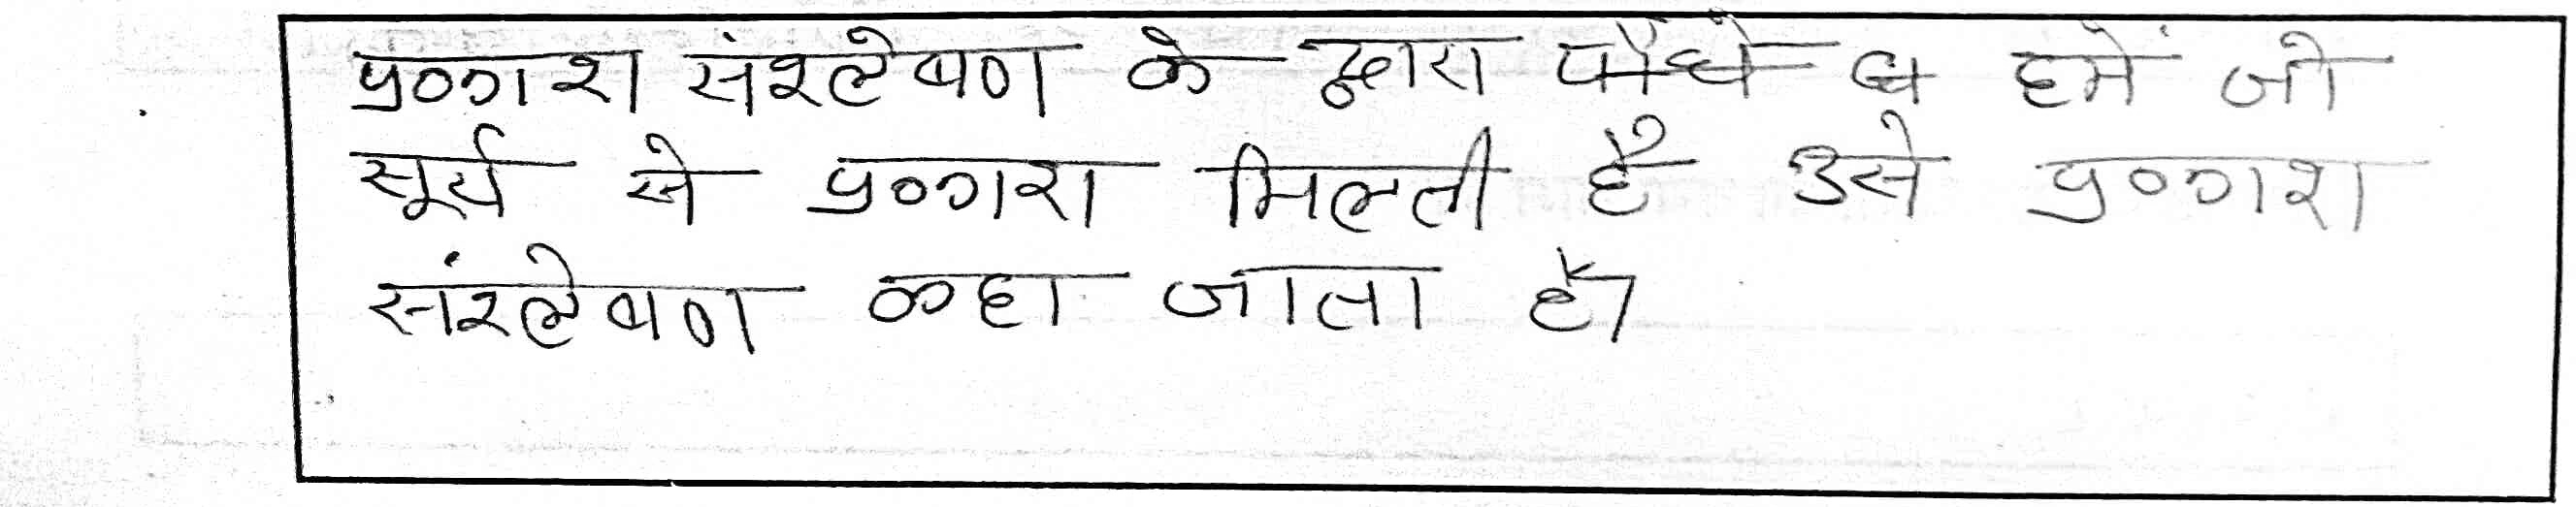 प्रकाश संश्लेषण के द्वारा पौधे व हमें जो
सूर्य से प्रकाश मिलती है उसे प्रकाश
संश्लेषण कहा जाता है।